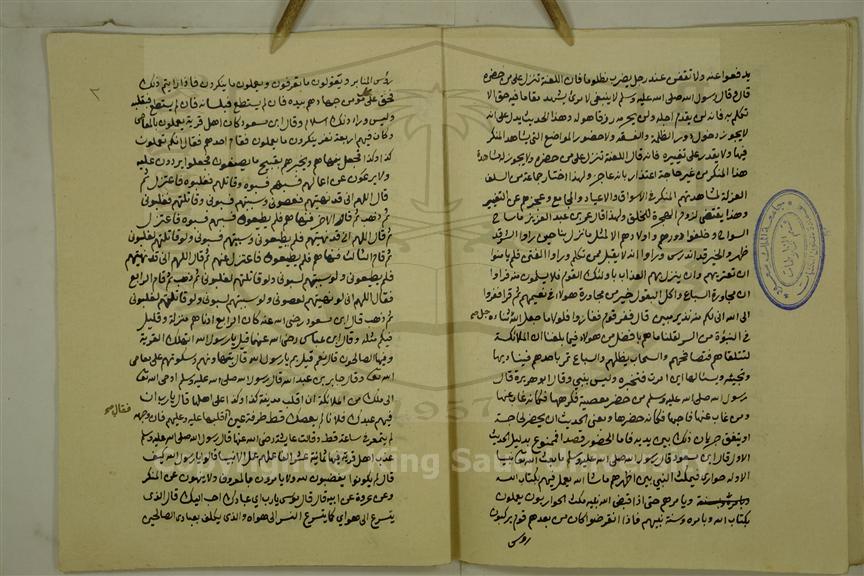 يدفعوا عنه ولا تقفن عند رجل يضرب مظلوما فان اللعنة تنزل على من حضره
قال وقال رسول الله صلى الله عليه وسلم لا ينبغي لامرئ يشهد مقاما فيه حق الا
تكلم به فانه لن يقدم اجله ولن يحرمه رزقا هو له وهذا الحديث يدل على انه
لا يجوز دخول دور الظلمة والفسقة ولا حضور المواضع التي يشاهد المنكر
فيها ولا يقدر على تغييره فانه قال اللعنة تنزل على من حضره ولا يجوز له مشاهدة
هذا المنكر من غير حاجة اعتذار بانه عاجز ولهذا اختار جماعة من السلف
العزلة لمشاهدتهم المنكر في الاسواق والاعياد والمجامع وعجزهم عن التغيير
وهذا يقتضي لزوم الهجرة للخلق ولهذا قال عمر بن عبد العزيز ما ساح
السواح وخلفوا دورهم واولادهم الا لمثل ما نزل بنا حين راوا الشر قد
ظهر والخير قد اندرس وراوا انه لا يقبل ممن تكلم وراوا الفتن فلم يامنوا
ان تعتريهم وان ينزل بهم العذاب باولئك القوم فلا يسلمون منه فراوا
ان مجاورة السباع واكل البقول خير من مجاورة هؤلاء في نعيمهم ثم قرا ففروا
الى الله اني لكم منه نذير مبين قال ففر قوم فلولا ما جعل الله جل ثناؤه
في النبوة من السر لقلنا ما هم بافضل من هؤلاء فيما بلغنا ان الملائكة
لتتلقاهم وتصافحهم والسحاب والسباع تمر باحدهم فيناديها
فتجيبه ويسالها اين امرت فتخبره وليس بنبي وقال ابو هريرة قال
رسول الله صلى الله عليه وسلم من حضر معصية فكرهها فكانه غاب عنها
ومن غاب عنها فاحبها فكانه حضرها ومعنى الحديث ان يحضر لحاجة
او يتفق جريان ذلك بين يديه فاما الحضور قصدا فممنوع بدليل الحديث
الاول قال ابن مسعود قال رسول الله صلى الله عليه وسلم ما بعث الله تعالى نبيا
الا وله حواري فيمكث النبي بين اظهرهم ما شاء الله يعمل فيهم بكتاب الله
ويامرهم حتى اذا قبض الله نبيه مكث الحواريون يعملون
بكتاب الله وبامره وسنة نبيهم فاذا انقرضوا كان من بعدهم قوم يركبون
رؤس
رؤس المنابر ويقولون ما يعرفون ويعملون ما ينكرون فاذا رايتم ذلك
فحق على كل مؤمن جهادهم بيده فان لم يستطع فبلسانه فان لم يستطع فبقلبه
وليس وراء ذلك اسلام وقال ابن مسعود كان اهل قرية يعملون بالمعاصي
وكان فيهم اربعة نفر ينكرون ما يعملون فقام احدهم فقال انكم تعملون
كذا وكذا فجعل ينهاهم ويخبرهم بقبيح ما يصنعون فجعلوا يردون عليه
ولا يرعوون عن اعمالهم فسبهم فسبوه وقاتلهم فغلبوه فاعتزل ثم
قال اللهم اني قد نهيتهم فلم يطيعوني وسببتهم فسبوني وقاتلتهم فغلبوني
ثم ذهب ثم قام الاخر فنهاهم فلم يطيعوه فسبهم فسبوه فاعتزل
ثم قال اللهم اني قد نهيتهم فلم يطيعوني وسببتهم فسبوني ولو قاتلتهم لغلبوني
ثم قام الثالث فنهاهم فلم يطيعوه فاعتزل عنهم ثم قال اللهم اني قد نهيتهم
فلم يطيعوني ولو سببتهم لسبوني ولو قاتلتهم لغلبوني ثم ذهب ثم قام الرابع
فقال اللهم اني لو نهيتهم لعصوني ولو سببتهم لسبوني ولو قاتلتهم لغلبوني
ثم ذهب قال ابن مسعود رضى الله عنه كان الرابع ادناهم منزلة وقليل
فيكم مثله وقال ابن عباس رضى الله عنهما قيل يا رسول الله اتهلك القرية
وفيها الصالحون قال نعم قيل بم يا رسول الله قال بتهاونهم وسكوتهم على معاصي
الله تعالى وقال جابر بن عبد الله قال رسول الله صلى الله عليه وسلم اوحى الله تعالى
الى ملك من الملائكة ان اقلب مدينة كذا وكذا على اهلها قال يا رب ان
فيهم عبدك فلانا لم يعصك قط طرفة عين فقال اقلبها عليه وعليهم فان وجهه
لم يتمعر في ساعة قط وقالت عايشة رضى الله عنها قال رسول الله صلى الله عليه وسلم
عذب اهل قرية فيها ثمانية عشر الفا عملهم عمل الانبياء قالوا يا رسول الله كيف
قال لم يكونوا يغضبون لله ولا يامرون بالمعروف ولا ينهون عن المنكر
وعن عروة عن ابيه قال قال موسى يا رب اي عبادك احب اليك قال الذي
يتسرع الى هواي كما يتسرع النسر الى هواه والذي يكلف بعبادي الصالحين
1957
Copyright © King Saud University